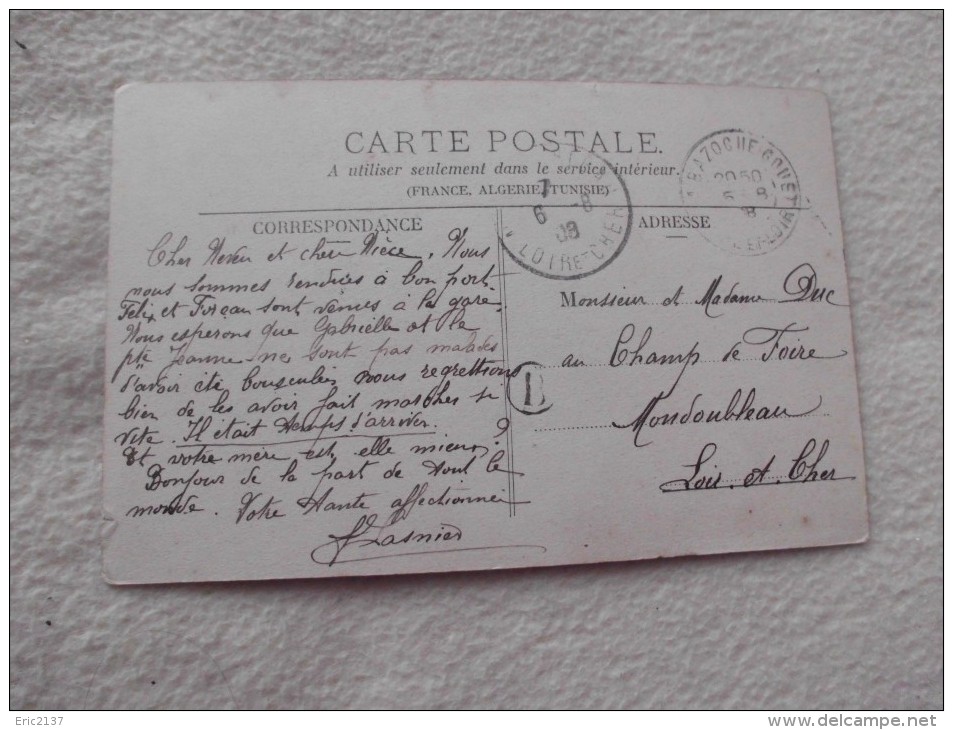 CARTE POSTALE.
A utiliser seulement dans le service intérieur.
(FRANCE, ALGERIE, TUNISIE)
CORRESPONDANCE
Cher Neveu et chère Nièce. Nous
nous sommes rendues à bon port.
Felix et sont vênus à la gare.
Nous esperons que Gabrielle et la
pte Jeanne ne sont pas malades
d'avoir été bousculées nous regrettions
bien de les avoir fait marcher si
vite. Il était temps d'arriver.
Et votre mère est elle mieux?
Bonjour de la part de tout le
monde. Votre tante affectionnée
Lasnier
7
6 - 8
08
LOIRE-CHER
BAZOCHE GOUET
20 50
6 - 8
8
ET-LOIR
B
ADRESSE
Monsieur et Madame Duc
au Champ de Foire
Mondoubleau
Loir. et. Cher
Eric2137
www.delcampe.net